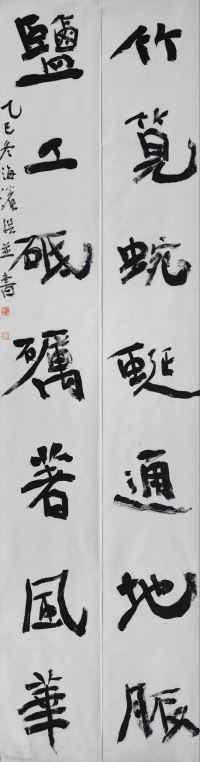 竹筧蜿蜒通地脈
鹽工砥礪著風華
乙巳冬海濱撰並書